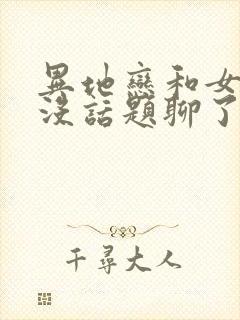 異地戀和女
沒話題聊了
千尋大人